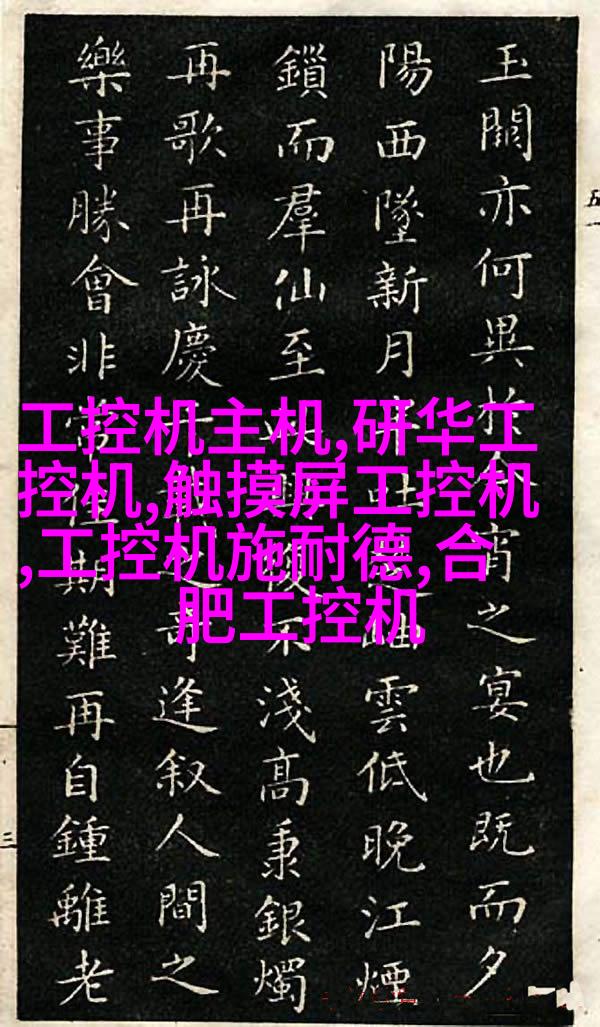 玉關亦何異於宵之宴也既而夕
陽西墜新月吐岫雲低晚江煙
鎖而羣仙至興不淺高秉銀燭
再歌再詠慶奇逢叙人間之
樂事勝會非常佳期難再自鍾離老
工控机主机,研华工
控机,触摸屏工控机
,工控机施耐德,合
肥工控机
五一
三